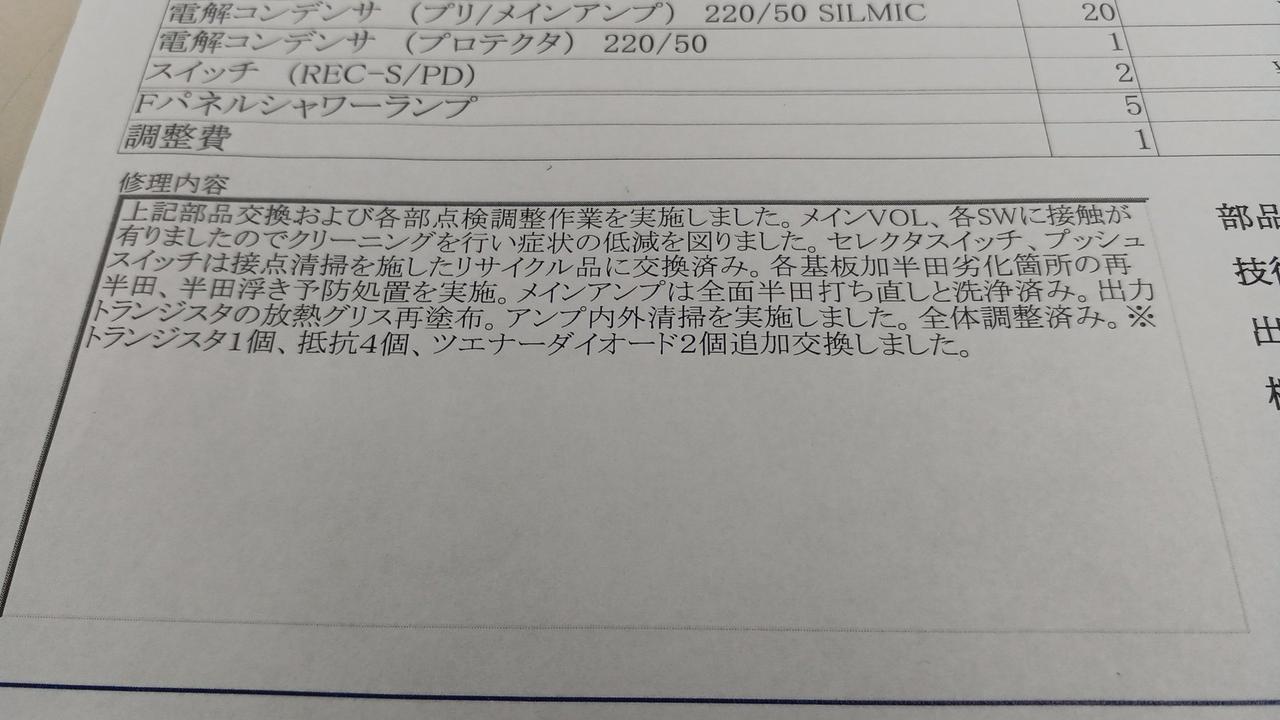 電解コンデンサ （プリ/メインアンプ） 220/50 SILMIC 20
電解コンデンサ （プロテクタ） 220/50 1
スイッチ （REC-S/PD） 2
Fパネルシャワーランプ 5
調整費 1
修理内容
上記部品交換および各部点検調整作業を実施しました。メインVOL、各SWに接触が
有りましたのでクリーニングを行い症状の低減を図りました。セレクタスイッチ、プッシュ
スイッチは接点清掃を施したリサイクル品に交換済み。各基板加半田劣化箇所の再
半田、半田浮き予防処置を実施。メインアンプは全面半田打ち直しと洗浄済み。出力
トランジスタの放熱グリス再塗布。アンプ内外清掃を実施しました。全体調整済み。※
トランジスタ1個、抵抗4個、ツエナーダイオード2個追加交換しました。
部品
技
出